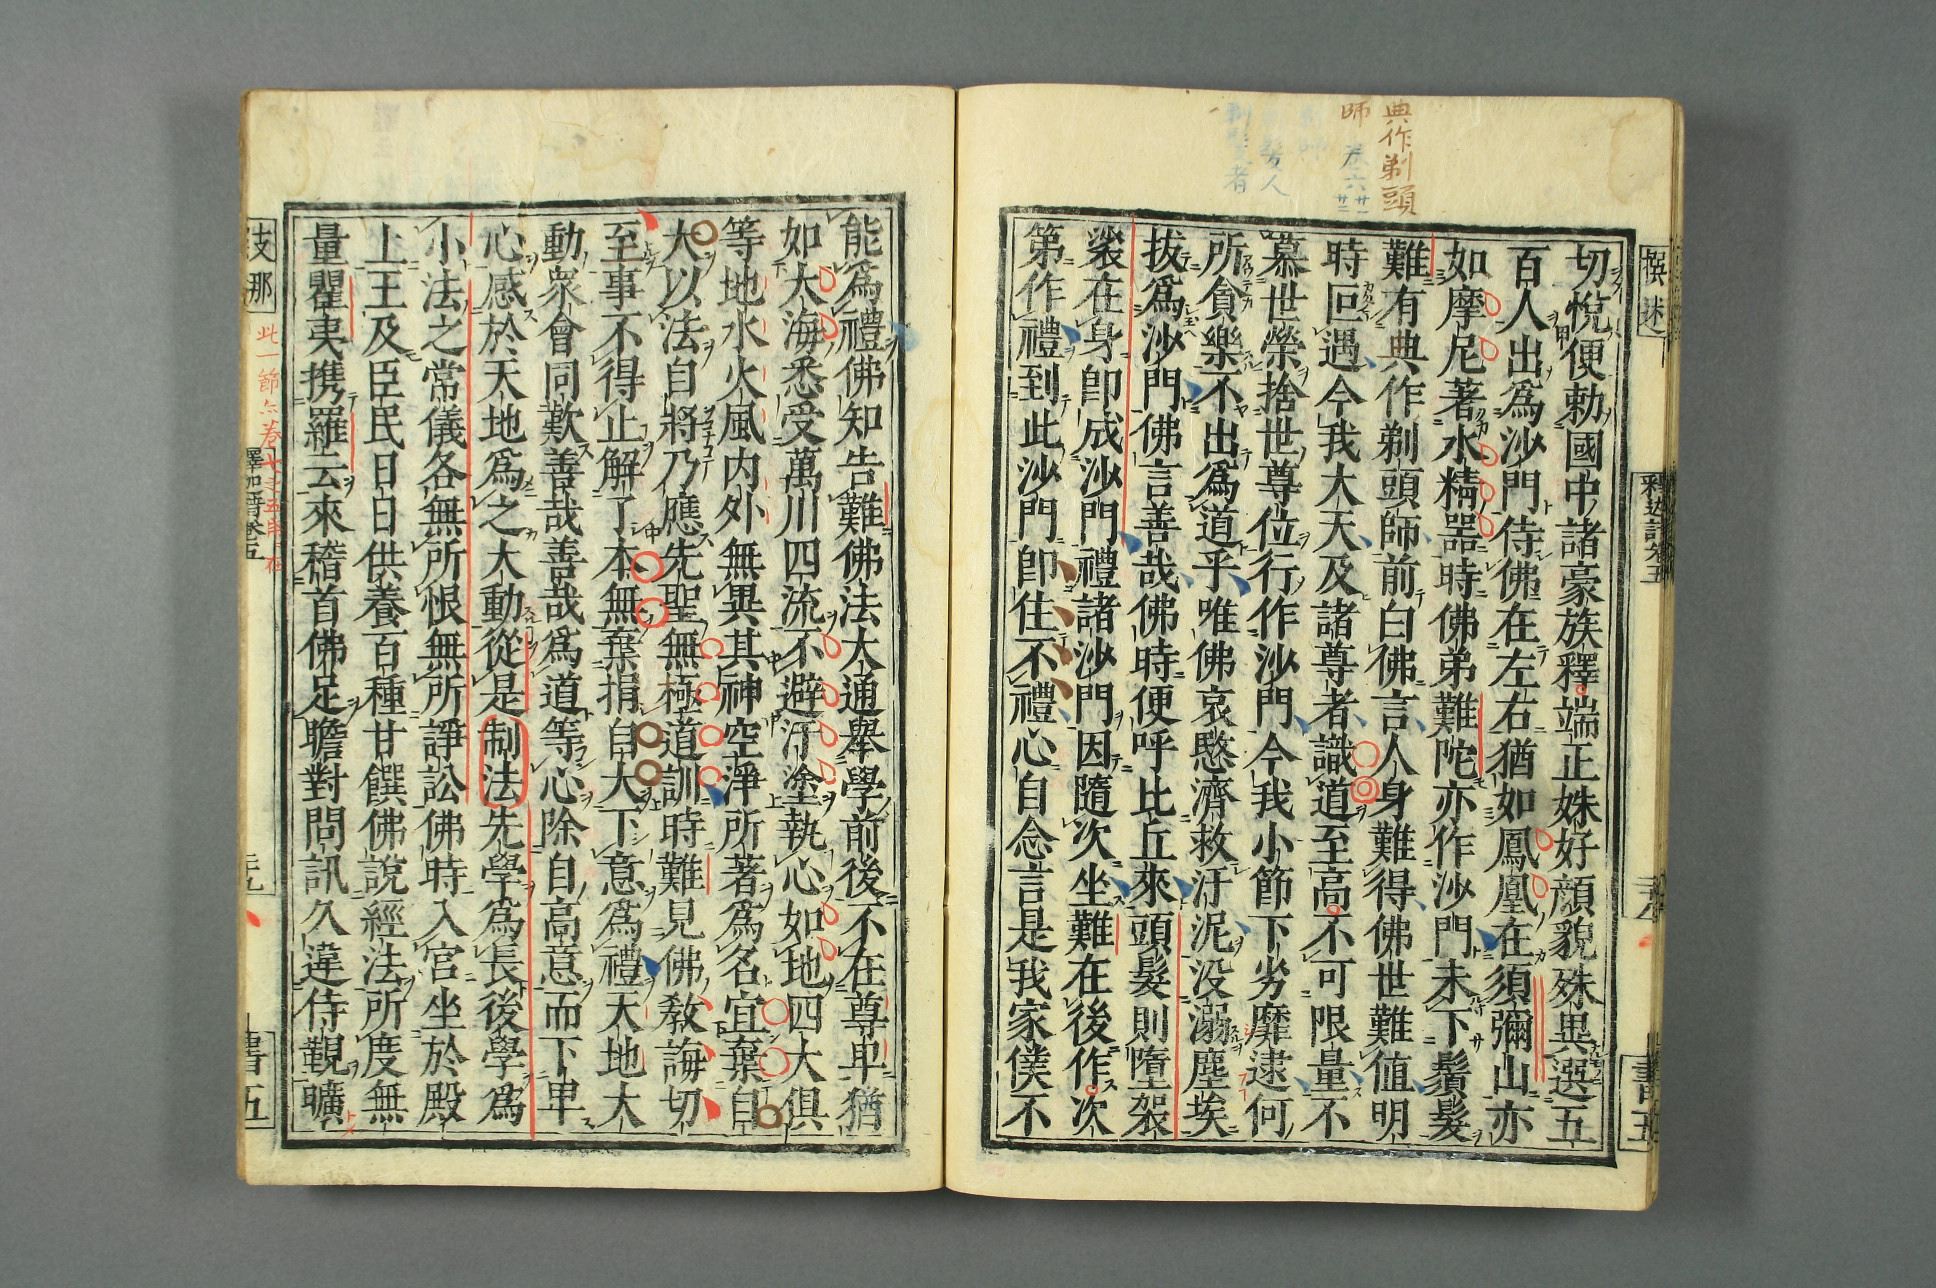 典作剃頭
師
卷六廿一
廿二
切悅便勅國中諸豪族釋端正姝好顏貌殊異選五
百人出爲沙門侍佛在左右猶如鳳凰在須彌山亦
如摩尼著水精器時佛弟難陀亦作沙門未下鬚髮
難有典作剃頭師前白佛言人身難得佛世難値明
時叵遇今我大天及諸尊者識道至高不可限量不
慕世榮捨世尊位行作沙門今我小節下劣靡逮何
所貪樂不出爲道乎唯佛哀愍濟救汙泥没溺塵埃
拔爲沙門佛言善哉佛時便呼比丘來頭髮則墮袈
裟在身卽成沙門禮諸沙門因隨次坐難在後作次
第作禮到此沙門卽住不禮心自念言是我家僕不
能爲禮佛知告難佛法大通舉學前後不在尊卑猶
如大海悉受萬川四流不避汙塗執心如地四大俱
等地水火風内外無異其神空淨所著爲名宜棄自
大以法自將乃應先聖無極道訓時難見佛敎誨切
至事不得止解了本無棄捐自大下意爲禮天地大
動衆會同歎善哉善哉爲道等心除自高意而下卑
心感於天地爲之大動從是制法先學爲長後學爲
小法之常儀各無所恨無所諍訟佛時入宮坐於殿
上王及臣民日日供養百種甘饌佛說經法所度無
量瞿夷携羅云來稽首佛足瞻對問訊久違侍覲曠
支那
此一節
書五